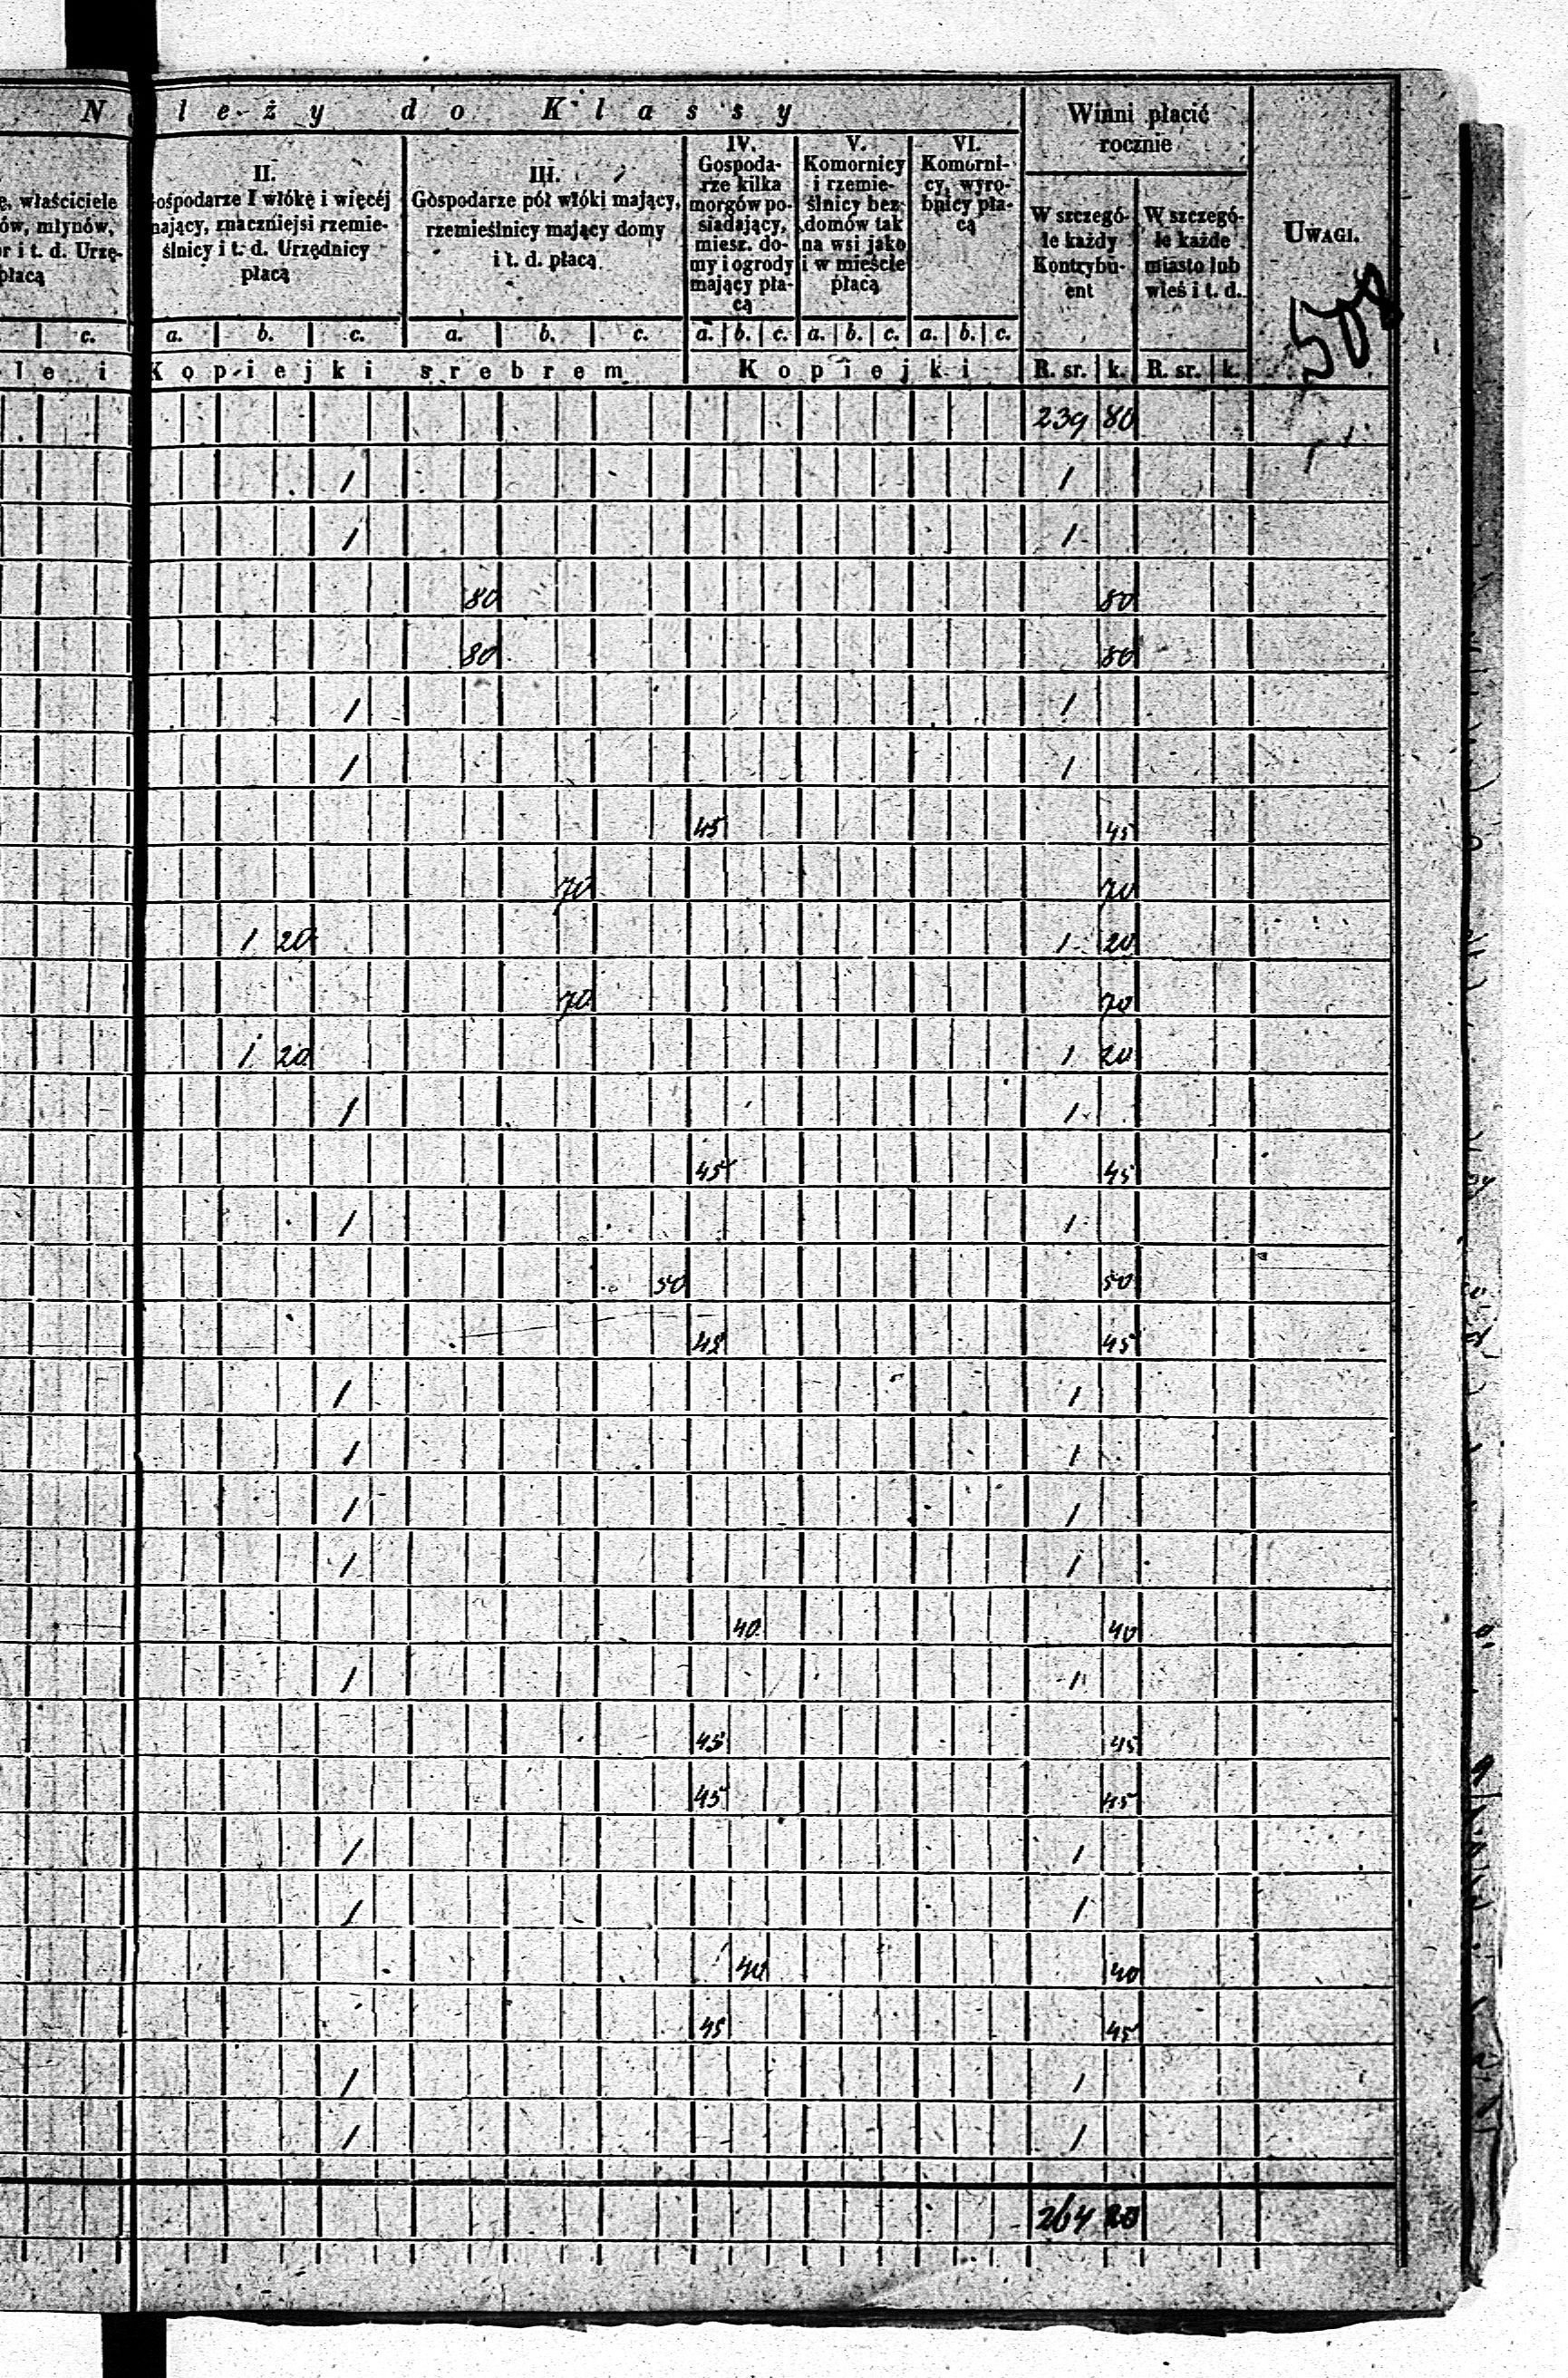 N leży do Klassy
Winni płacić
rocznie
UWAGI.
508
właściciele
ów, młynów,
r i t. d. Urzę-
płacą
II.
ospodarze I włókę i więcéj
mający, znaczniejsi rzemie-
ślnicy i t. d. Urzędnicy
płacą
III.
Gospodarze pół włóki mający,
rzemieślnicy mający domy
i t. d. płacą
IV.
Gospoda-
rze kilka
morgów po-
siadający,
miesz. do-
my i ogrody
mający pła-
cą
V.
Komornicy
i rzemie-
ślnicy bez
domów tak
na wsi jako
i w mieście
płacą
VI.
Komorni-
cy, wyro-
bnicy pła-
cą
W szczegó-
le każdy
Kontrybu-
ent
W szczegó-
le każde
miasto lub
wieś i t. d.
c. a. b. c. a. b. c. a. b. c. a. b. c. a. b. c.
le i Kopiejki srebrem Kopiejki R. sr. k. R. sr. k.
239 80
1 1
1 1
80 80
80 80
1 1
1 1
45 45
70 70
1 20 1 20
70 70
1 20 1 20
1 1
45 45
1 1
50 50
45 45
1 1
1 1
1 1
1 1
40 40
1 1
45 45
45 45
1 1
1 1
40 40
45 45
1 1
1 1
264 20